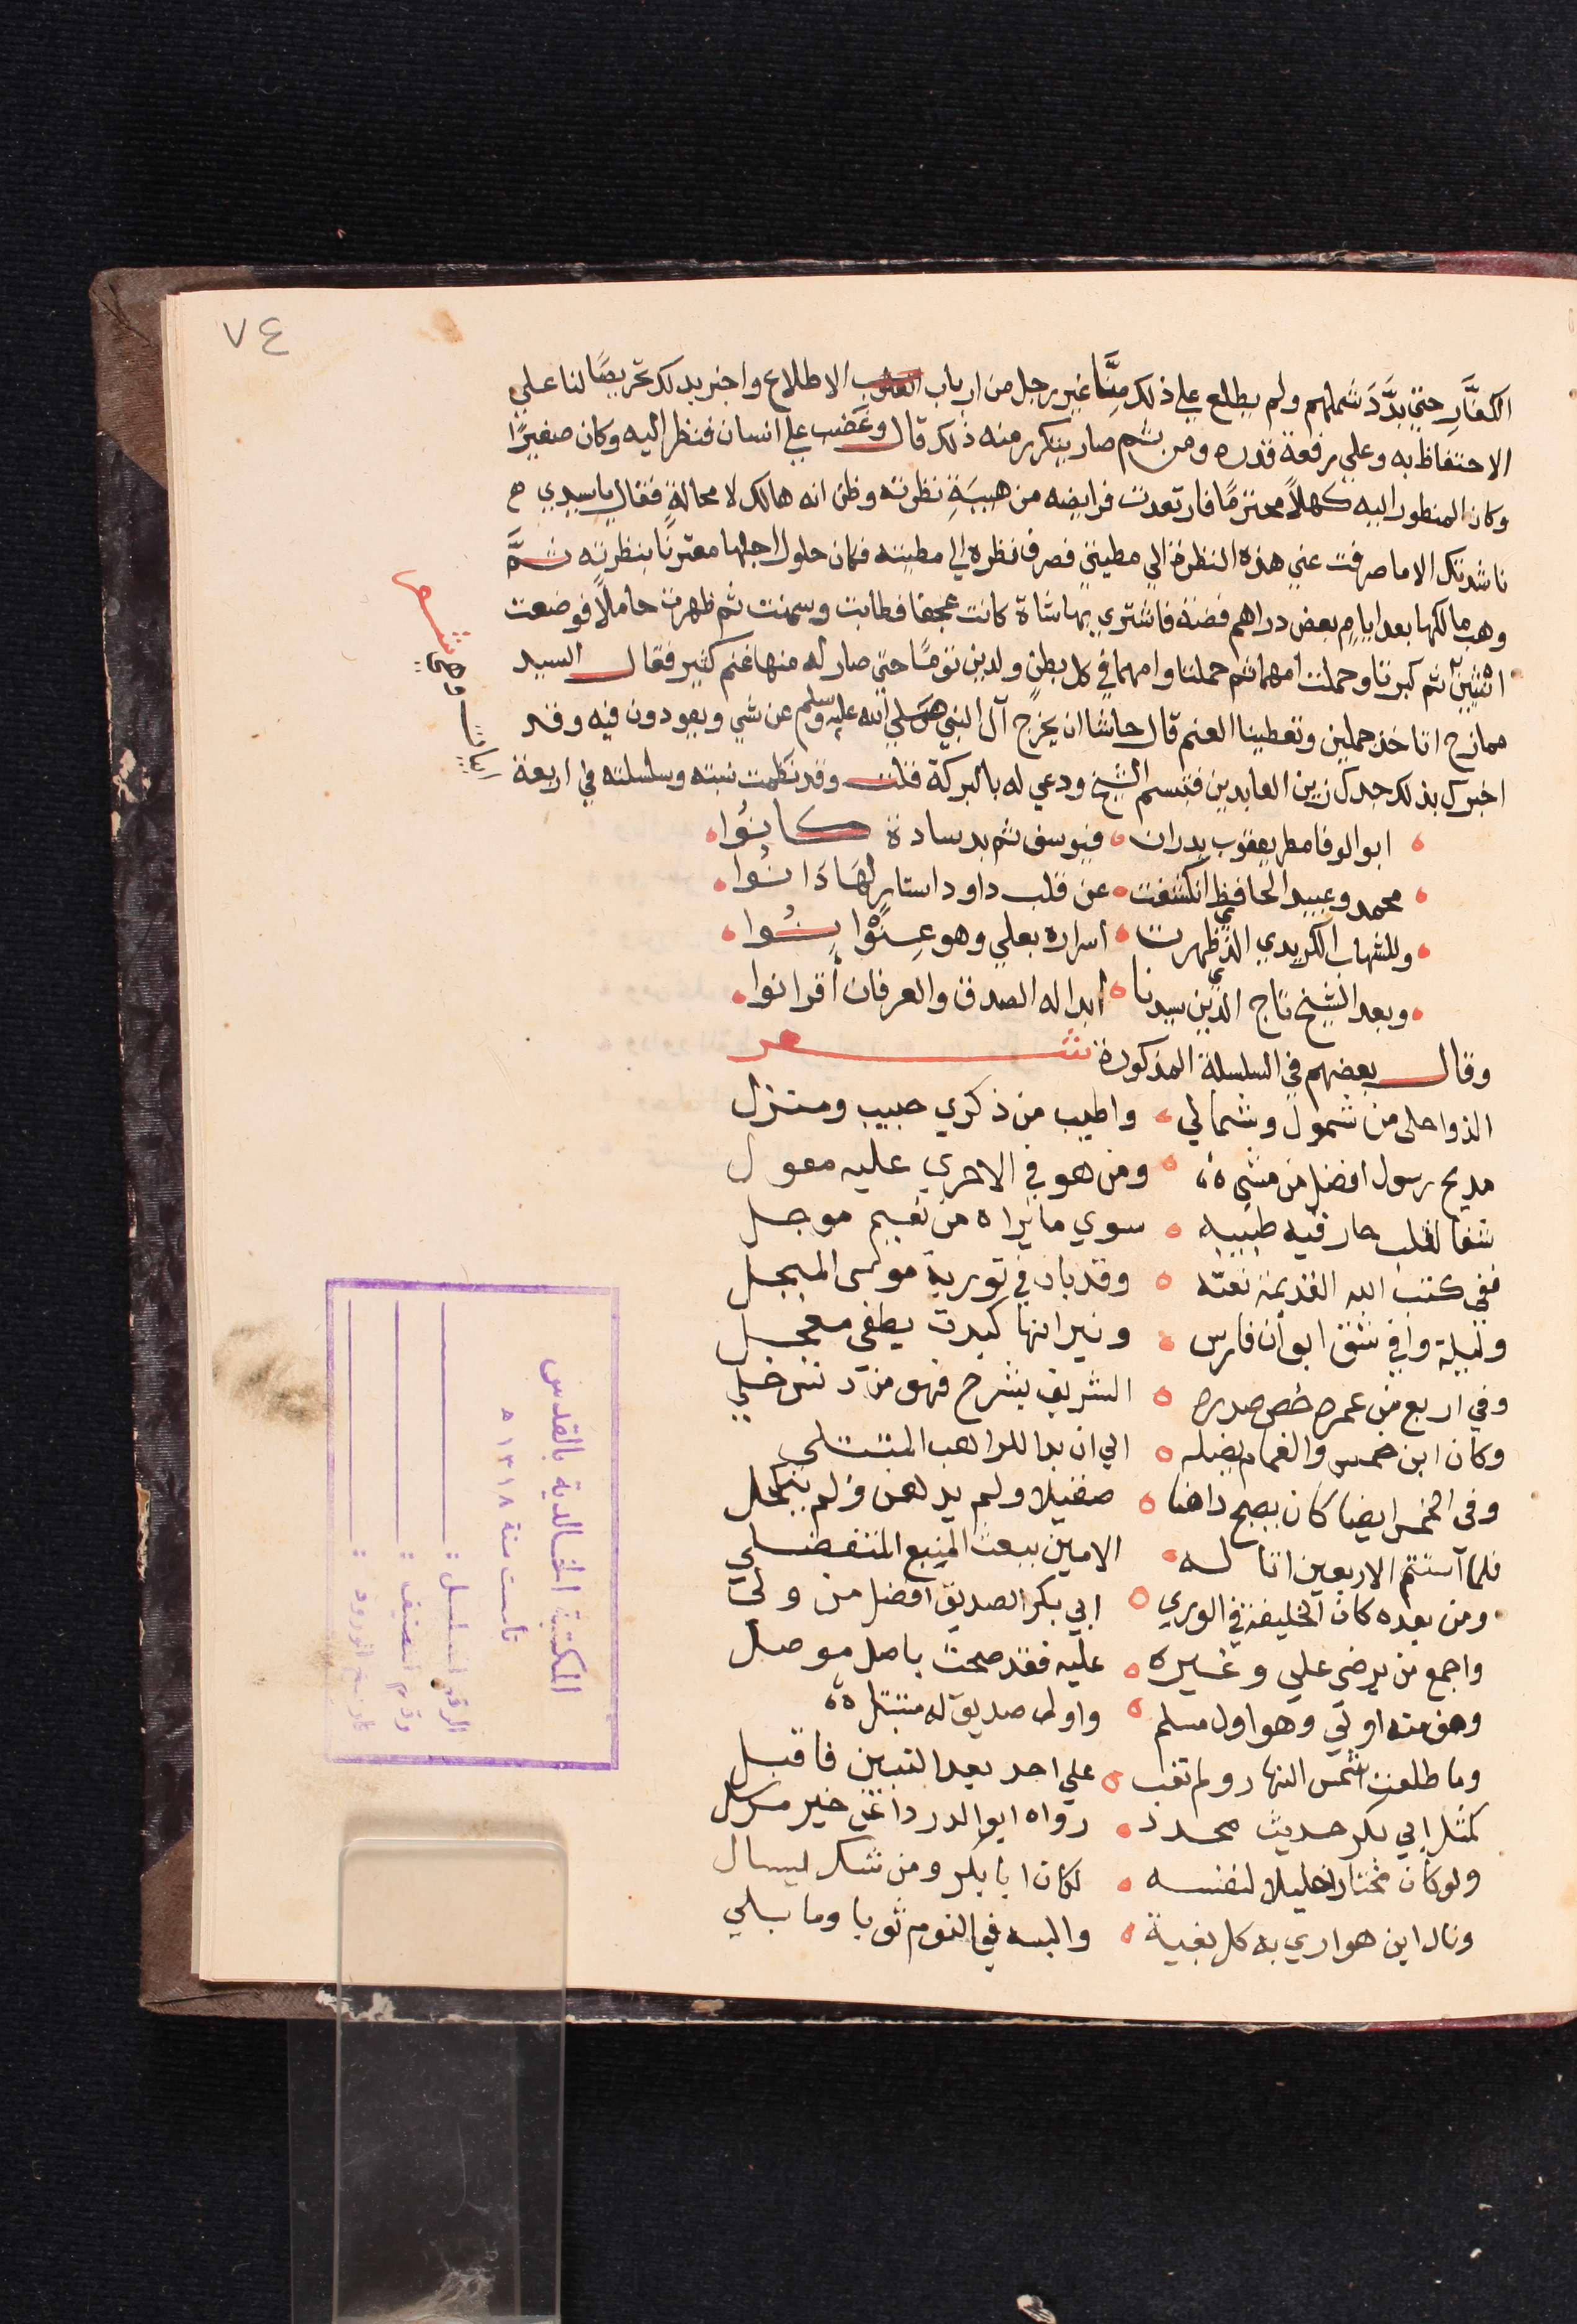 ٧٤
الكفَّارِ حتي بدَّدَ شملهم ولم يطلع علي ذلك مِنَّا غير رجل من ارباب القلوب الاطلاع واخبر بدلك تحريضًا لنا علي
الاحتفاظ به وعلي رفعة قدره ومن ثم صار يتكرر منه ذلك قال وغضب علي انسان فنظر اليه وكان صغيرًا
وكان المنظور اليه كهلاً محترمًا فارتعدت فرايضه من هيبَةِ نظرته وظن انه هالك لا محالةٍ فقال يا سيدي
ناشدتك الا ما صرفت عني هذه النظرة الي مطيتي فصرف نظره الي مطيته فكان حلول اجلها مقترنًا بنظرته ثمَّ
وهب مالكها بعد ايامٍ بعض دراهم فضة فاشتري بها شاة كانت عجفا فطابت وسمنت ثم ظهرت حاملاً فوضعت
اثنين ثم كبرتا وحملت امهما ثم حملتا وامهما في كل بطنٍ ولدين تومًا حتي صار له منها غنم كثير فقال السيد
ممازح اتاخذ حملين وتعطينا الغنم قال حاشا ان يخرج آل النبي صلي الله عليه وسلم عن شي ويعودون فيه وقد
اخبرك بذلك جدك زين العابدين فتبسم الشيخ ودعي له بالبركة قلت وقد نظمت نسبته وسلسلته في اربعة
ابيات وهي شعر
ابو الوفا مطر يعقوب بدران فيوسف ثم بدر سادة كانُوا
محمد وعبيد الحافظ انكشفت عن قلب داود استار لهَا دَانُوا
وللشهاب الكريدي الذي ظهرت اسراره بعلي وهو عنْوانُوا
وبعد الشيخ تاج الدين سيدنا ابدا له الصدق والعرفان أقرانوا
وقال بعضهم في السلسلة المذكورة شعر
الذ واحلى من شمول وشمالي واطيب من ذكري حبيب ومنزل
مديح رسول افضل من مشي ومن هو في الاخري عليه معول
شفا لقلب حار فيه طبيبه سوي ما يراه من نعيم موجل
ففي كتب الله القديمة نعته وقد بان في تورية موسى المبجل
وليلة وافي شق ايوان فارس ونيرانها كيدت يطفي معجل
وفي اربع من عمره خص صدره الشريف بشرح فهو من دنس خلي
وكان ابن خمس والغمام يضله الي ان بدا للراهب المتبتلي
وفي الخمس ايضا كان يصبح داهنا صقيلا ولم يدهن ولم يتكحل
فلما استتم الاربعين اتا له الامين ببعث المنيع المتفضلي
ومن بعده كان الخليفة في الوري ابي بكر الصديق افضل من ولي
واجمع من يرضى علي وغيره عليه فقد صحت باصل موصل
وهو منه اوتي وهو اول مسلم واول صديق له متبتل
وما طلعت شمس النهار ولم تغب علي احد بعد النبيين فاقبل
كمثل ابي بكر حديث محدد رواه ابو الدردا عن خير مرسل
ولو كان مختارا خليلا لنفسه لكان ابا بكر ومن شك ليسال
ونال ابن هواري به كل بغية والبسه في النوم ثوبا وما بلي
المكتبة الخالدية بالقدس
تأسست سنة ١٣١٨ هـ
الرقم المتسلسل :
رقم التصنيف :
تاريخ الورود :